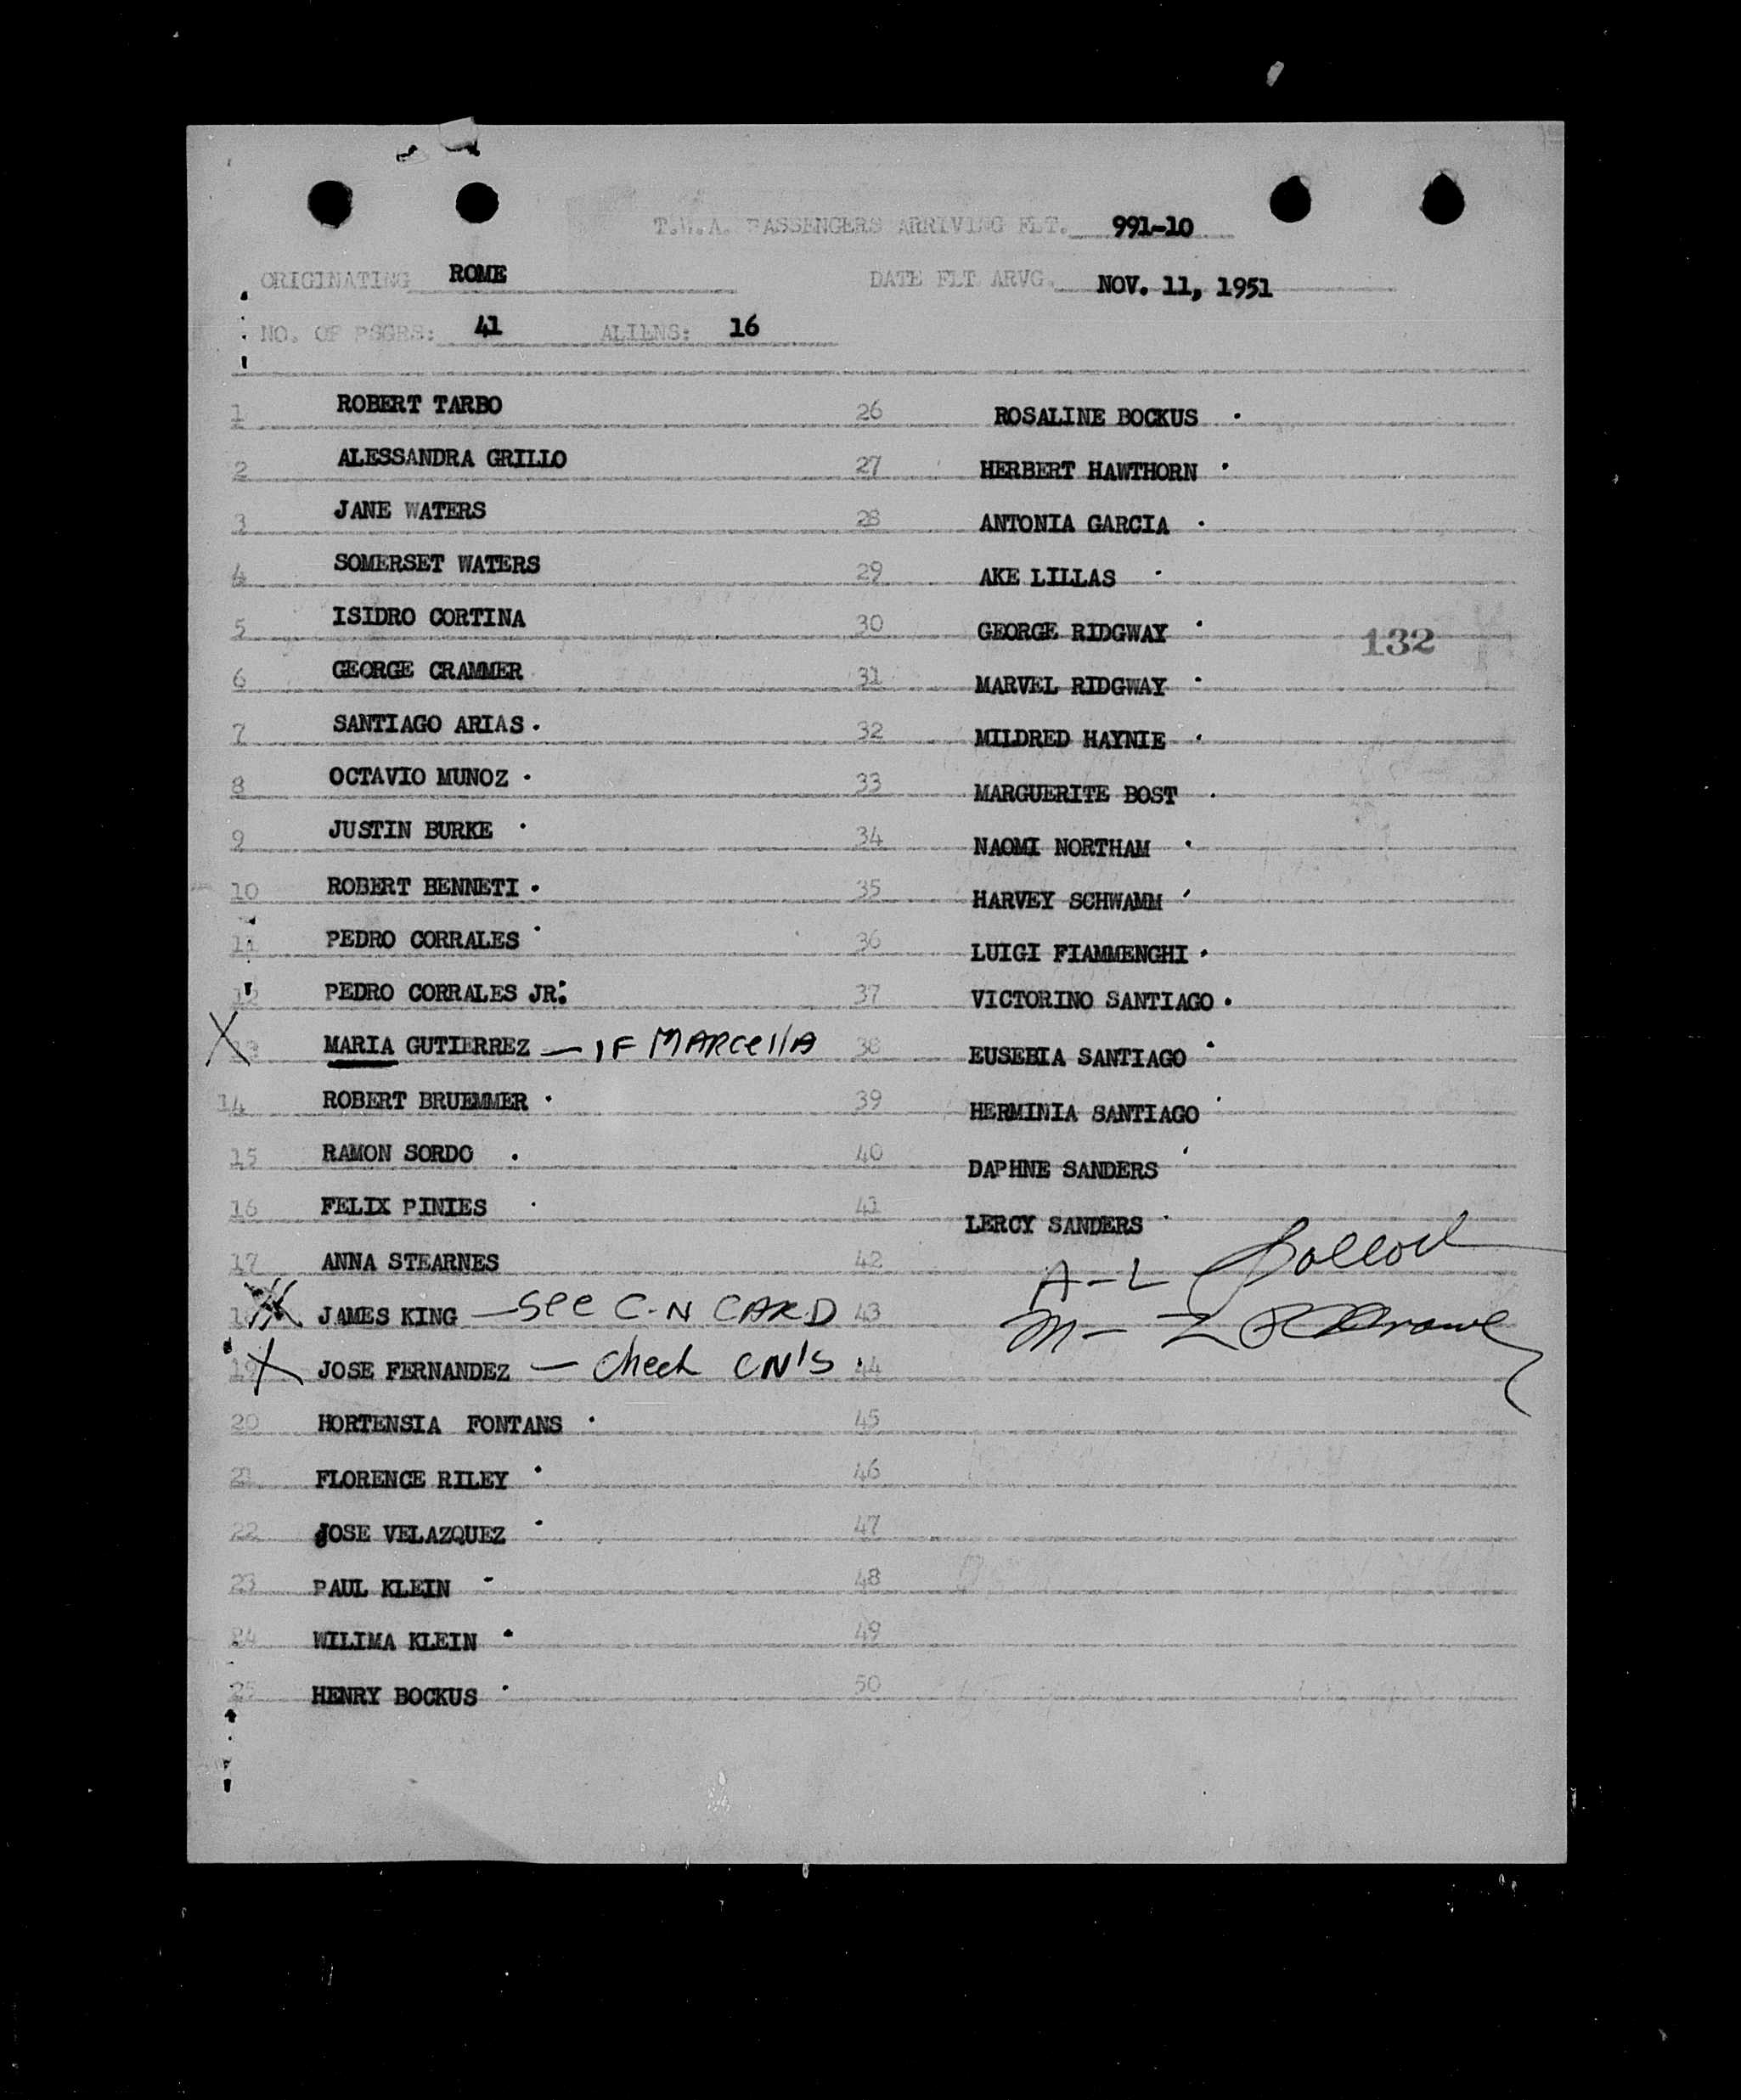 T.W.A. PASSENGERS ARRIVING FLT. 991-10
ORIGINATING ROME DATE FLT ARVG. NOV. 11, 1951
NO. OF PSGRS: 41 ALIENS: 16
1 ROBERT TARBO
2 ALESSANDRA GRILLO
3 JANE WATERS
4 SOMERSET WATERS
5 ISIDRO CORTINA
6 GEORGE CRAMMER
7 SANTIAGO ARIAS.
8 OCTAVIO MUNOZ .
9 JUSTIN BURKE .
10 ROBERT BENNETI .
11 PEDRO CORRALES
12 PEDRO CORRALES JR.
X 13 MARIA GUTIERREZ — IF MARCellA
14 ROBERT BRUEMMER .
15 RAMON SORDO .
16 FELIX PINIES .
17 ANNA STEARNES
18 JAMES KING — See C-N CARD
X 19 JOSE FERNANDEZ — check CN'S.
20 HORTENSIA FONTANS .
21 FLORENCE RILEY .
22 JOSE VELAZQUEZ
23 PAUL KLEIN
24 WILIMA KLEIN .
25 HENRY BOCKUS .
26 ROSALINE BOCKUS .
27 HERBERT HAWTHORN .
28 ANTONIA GARCIA .
29 AKE LILLAS .
30 GEORGE RIDGWAY .
132
31 MARVEL RIDGWAY .
32 MILDRED HAYNIE .
33 MARGUERITE BOST .
34 NAOMI NORTHAM .
35 HARVEY SCHWAMM
36 LUIGI FIAMMENGHI .
37 VICTORINO SANTIAGO .
38 EUSEBIA SANTIAGO .
39 HERMINIA SANTIAGO
40 DAPHNE SANDERS
41 LERCY SANDERS
42 A-L
43 M-Z
44
45
46
47
48
49
50